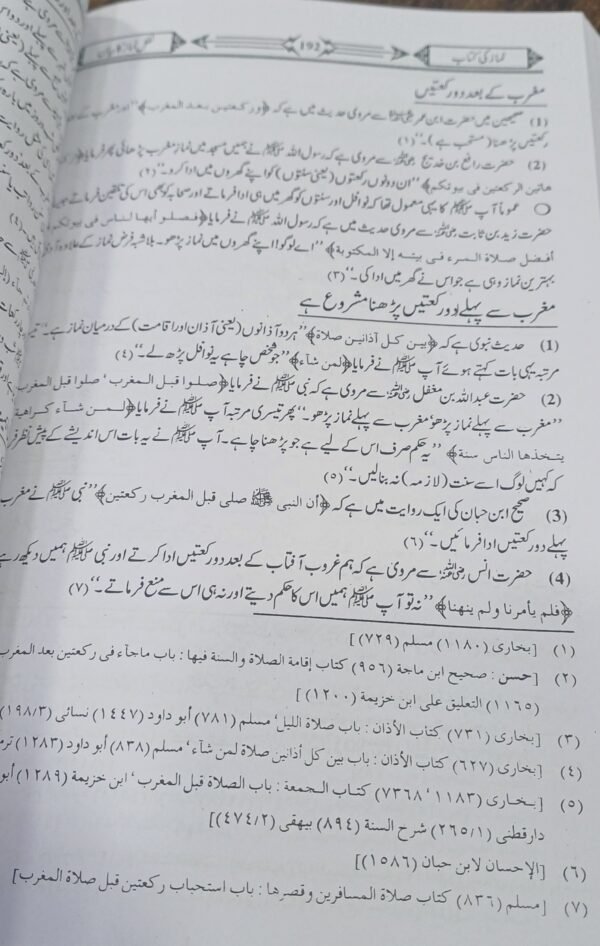 نماز کی کتاب
192
مغرب کے بعد دو رکعتیں
(1) صحیحین میں حضرت ابن عمر رضی اللہ عنہما سے مروی حدیث میں ہے کہ ﴿ورکعتین بعد المغرب﴾ "اور مغرب کے بعد
رکعتیں پڑھنا (مستحب ہے)۔" (۱)
(2) حضرت رافع بن خدیج رضی اللہ عنہ سے مروی ہے کہ رسول اللہ ﷺ نے ہمیں مسجد میں نماز مغرب پڑھائی پھر فرمایا
هاتين الركعتين في بيوتكم﴾ "ان دونوں رکعتوں (یعنی سنتوں) کو اپنے گھروں میں ادا کرو۔" (۲)
○ عموماً آپ ﷺ کا یہی معمول تھا کہ نوافل اور سنتوں کو گھر میں ہی ادا فرماتے اور صحابہ کو بھی اس کی تلقین فرماتے
حضرت زید بن ثابت رضی اللہ عنہ سے مروی حدیث میں ہے کہ رسول اللہ ﷺ نے فرمایا ﴿فصلوا أيها الناس في بيوتكم
أفضل صلاة المرء في بيته إلا المكتوبة﴾ "اے لوگو! اپنے گھروں میں نماز پڑھو۔ بلاشبہ فرض نماز کے علاوہ آدمی
بہترین نماز وہی ہے جو اس نے گھر میں ادا کی۔" (۳)
مغرب سے پہلے دو رکعتیں پڑھنا مشروع ہے
(1) حدیث نبوی ہے کہ ﴿بين كل أذانين صلاة﴾ "ہر دو آذانوں (یعنی آذان اور اقامت) کے درمیان نماز ہے۔" تیسری
مرتبہ یہی بات کہتے ہوئے آپ ﷺ نے فرمایا ﴿لمن شاء﴾ "جو شخص چاہے یہ نوافل پڑھ لے۔" (٤)
(2) حضرت عبداللہ بن مغفل رضی اللہ عنہ سے مروی ہے کہ نبی ﷺ نے فرمایا ﴿صلوا قبل المغرب ' صلوا قبل المغرب
"مغرب سے پہلے نماز پڑھو' مغرب سے پہلے نماز پڑھو۔" پھر تیسری مرتبہ آپ ﷺ نے فرمایا ﴿لمن شاء كراهية
يتخذها الناس سنة﴾ "یہ حکم صرف اس کے لیے ہے جو پڑھنا چاہے۔ آپ ﷺ نے یہ بات اس اندیشے کے پیش نظر
کہ کہیں لوگ اسے سنت (لازمہ) نہ بنا لیں۔" (٥)
(3) صحیح ابن حبان کی ایک روایت میں ہے کہ ﴿أن النبي ﷺ صلى قبل المغرب ركعتين﴾ "نبی ﷺ نے مغرب
پہلے دو رکعتیں ادا فرمائیں۔" (٦)
(4) حضرت انس رضی اللہ عنہ سے مروی ہے کہ ہم غروب آفتاب کے بعد دو رکعتیں ادا کرتے اور نبی ﷺ ہمیں دیکھ رہے
﴿فلم يأمرنا ولم ينهنا﴾ "نہ تو آپ ﷺ ہمیں اس کا حکم دیتے اور نہ ہی اس سے منع فرماتے۔" (٧)
(١) [بخارى (١١٨٠) مسلم (٧٢٩)]
(٢) [حسن : صحيح ابن ماجة (٩٥٦) كتاب إقامة الصلاة والسنة فيها : باب ماجآء فى ركعتين بعد المغرب
(١١٦٥) التعليق على ابن خزيمة (١٢٠٠)]
(٣) [بخارى (٧٣١) كتاب الأذان : باب صلاة الليل' مسلم (٧٨١) أبو داود (١٤٤٧) نسائى (١٩٨/٣)
(٤) [بخارى (٦٢٧) كتاب الأذان : باب بين كل أذانين صلاة لمن شآء' مسلم (٨٣٨) أبو داود (١٢٨٣)
(٥) [بخارى (١١٨٣ ' ٧٣٦٨) كتاب الجمعة : باب الصلاة قبل المغرب' ابن خزيمة (١٢٨٩) أبو
دارقطنى (٢٦٥/١) شرح السنة (٨٩٤) بيهقى (٤٧٤/٢)]
(٦) [الإحسان لابن حبان (١٥٨٦)]
(٧) [مسلم (٨٣٦) كتاب صلاة المسافرين وقصرها : باب استحباب ركعتين قبل صلاة المغرب]